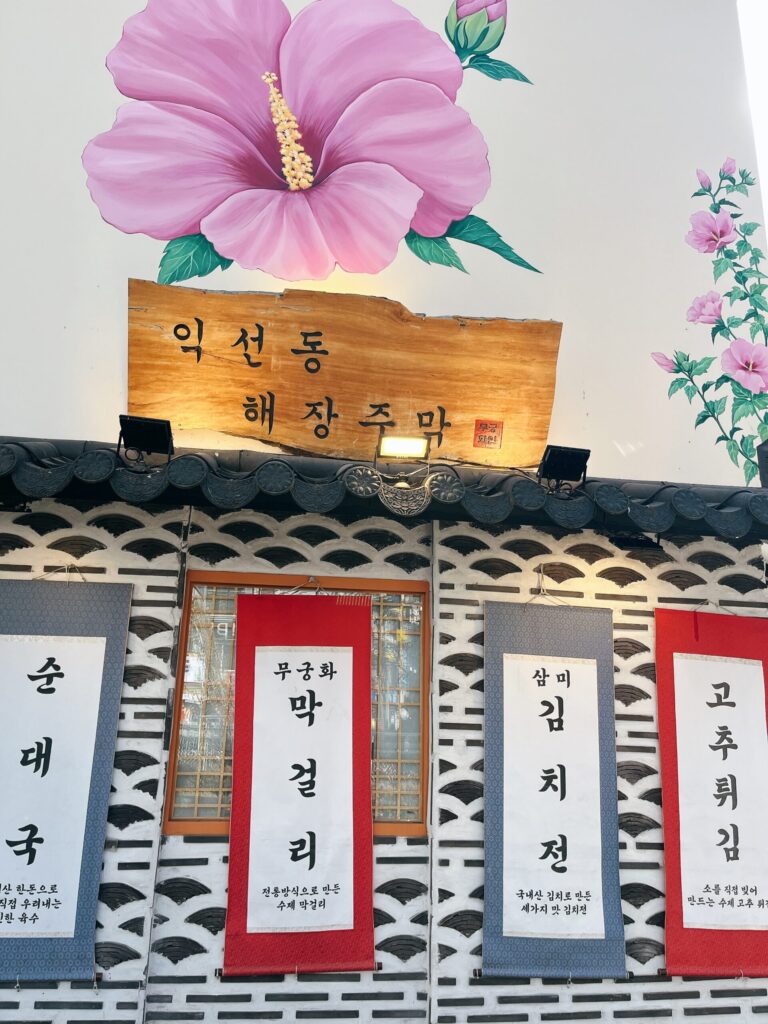 익선동
해장주막
무궁
화인
순대국
산 한돈으로
직접 우려내는
진한 육수
무궁화
막걸리
전통방식으로 만든
수제 막걸리
삼미
김치전
국내산 김치로 만든
세가지 맛 김치전
고추튀김
소를 직접 빚어
만드는 수제 고추 튀김